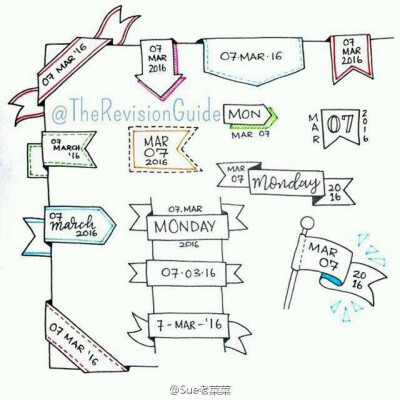 07 MAR '16
07
MAR
2016
07·MAR·16
07
MAR
2016
@TheRevisionGuide
MON
MAR 07
MAR
07
2016
07
MARCH
'16
MAR
07
2016
MAR
07
Monday
20
16
07
march
2016
07.MAR
MONDAY
2016
MAR
07
20
16
07·03·16
07 MAR '16
7-MAR-'16
@Sue老菜菜